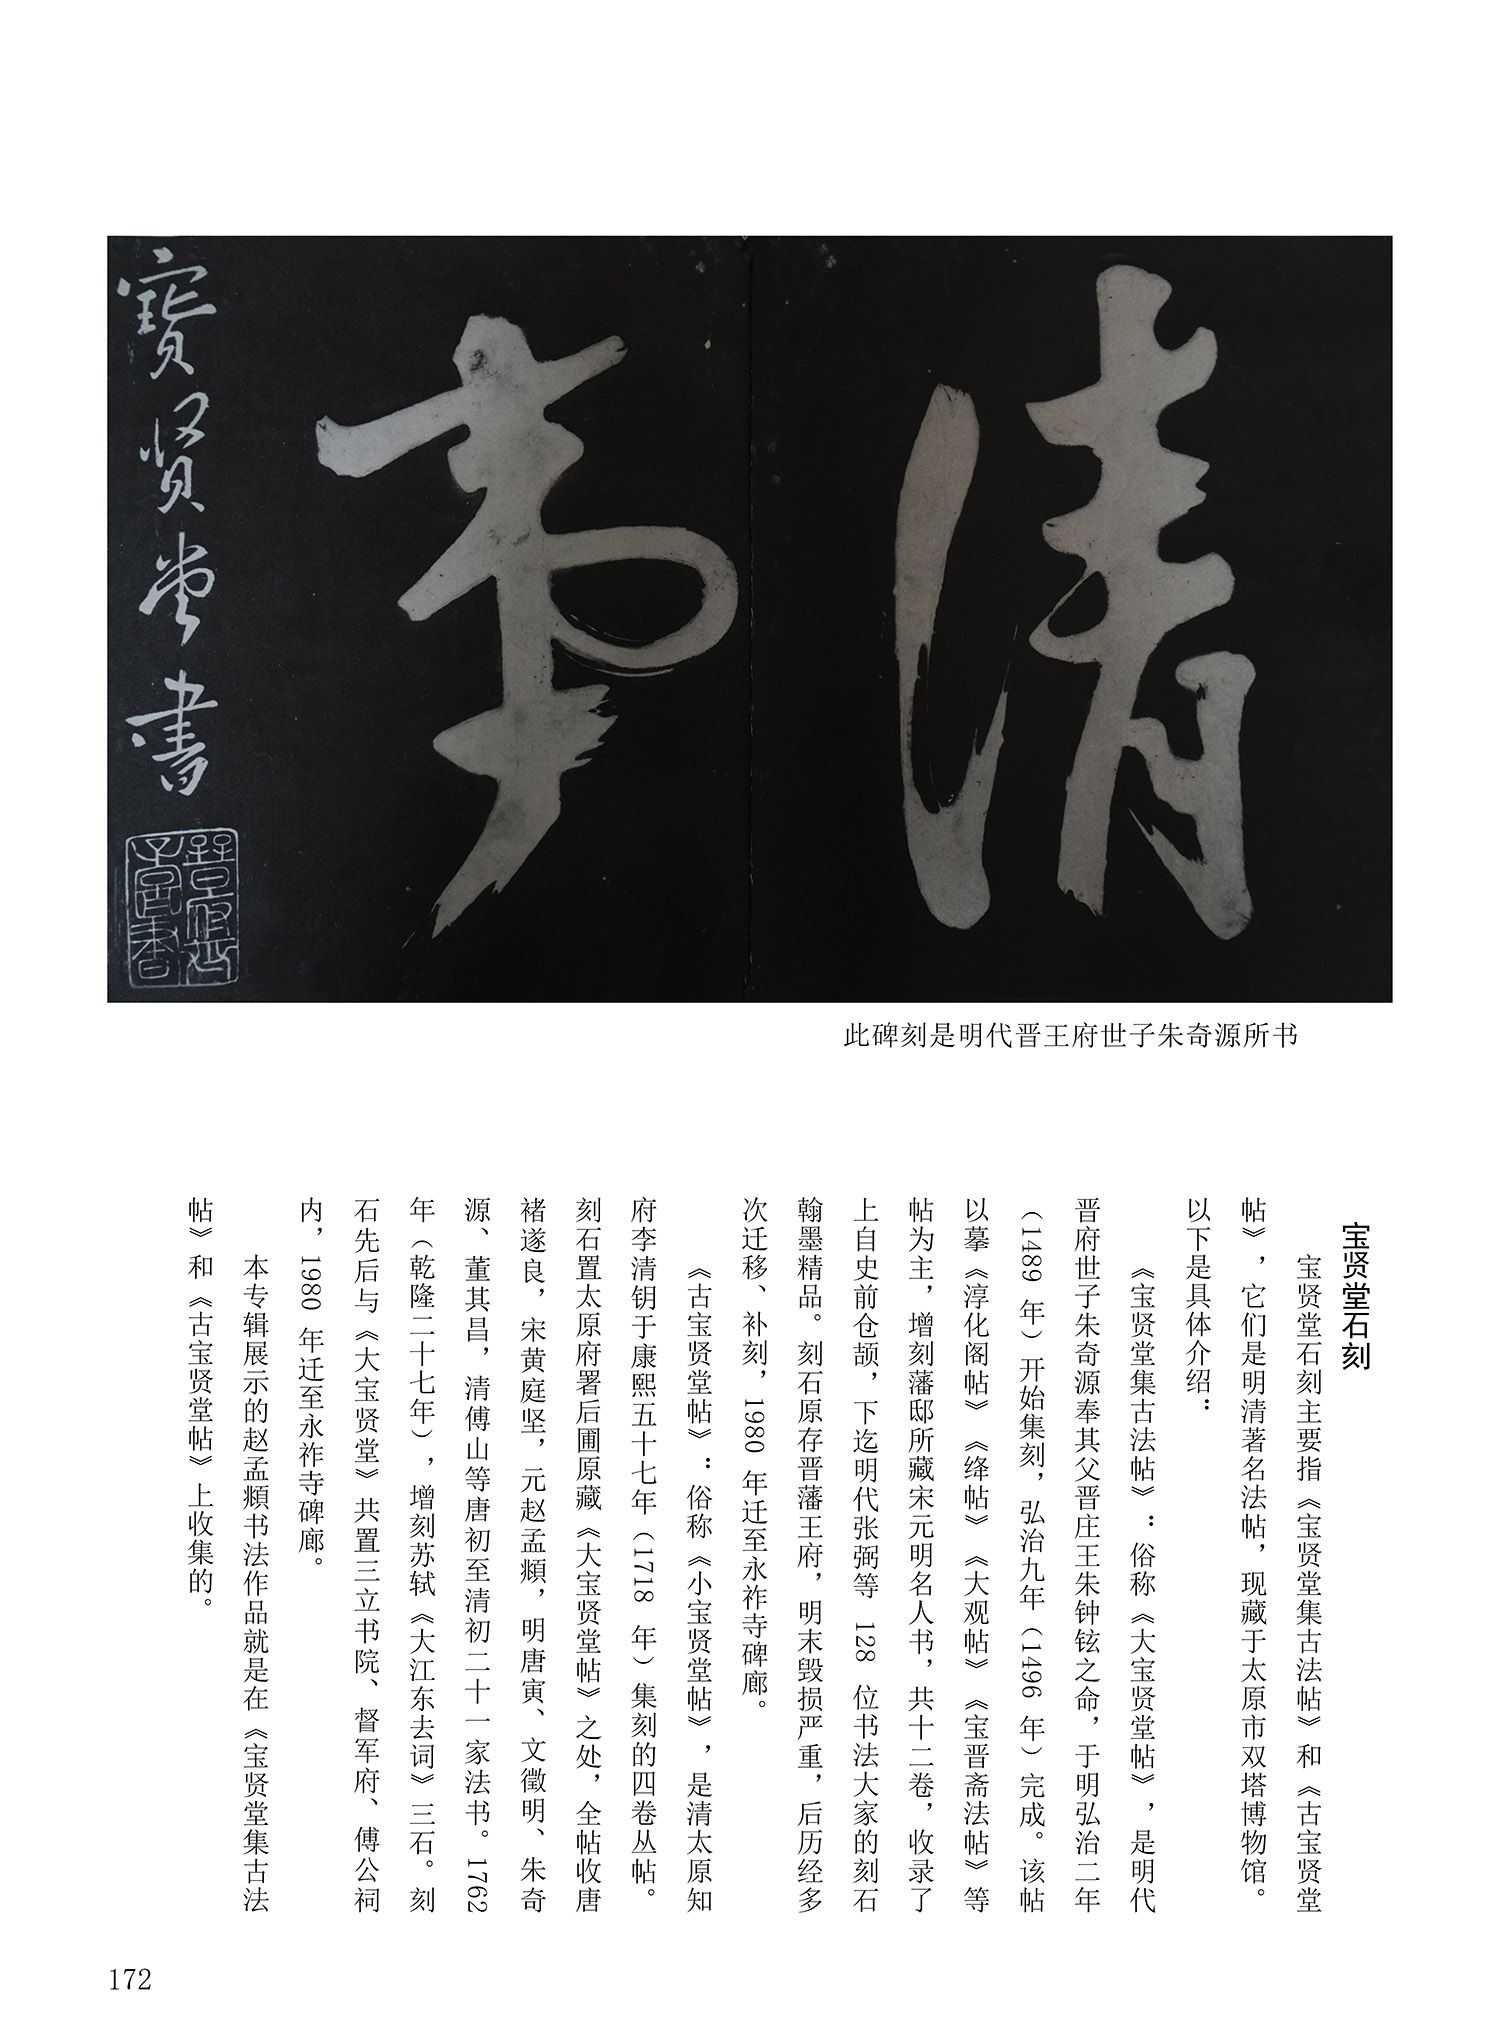 清
事
寶賢堂書
此碑刻是明代晋王府世子朱奇源所书
宝贤堂石刻
宝贤堂石刻主要指《宝贤堂集古法帖》和《古宝贤堂
帖》，它们是明清著名法帖，现藏于太原市双塔博物馆。
以下是具体介绍：
《宝贤堂集古法帖》：俗称《大宝贤堂帖》，是明代
晋府世子朱奇源奉其父晋庄王朱钟铉之命，于明弘治二年
（1489 年）开始集刻，弘治九年（1496 年）完成。该帖
以摹《淳化阁帖》《绛帖》《大观帖》《宝晋斋法帖》等
帖为主，增刻藩邸所藏宋元明名人书，共十二卷，收录了
上自史前仓颉，下迄明代张弼等 128 位书法大家的刻石
翰墨精品。刻石原存晋藩王府，明末毁损严重，后历经多
次迁移、补刻，1980 年迁至永祚寺碑廊。
《古宝贤堂帖》：俗称《小宝贤堂帖》，是清太原知
府李清钥于康熙五十七年（1718 年）集刻的四卷丛帖。
刻石置太原府署后圃原藏《大宝贤堂帖》之处，全帖收唐
褚遂良，宋黄庭坚，元赵孟頫，明唐寅、文徵明、朱奇
源、董其昌，清傅山等唐初至清初二十一家法书。1762
年（乾隆二十七年），增刻苏轼《大江东去词》三石。刻
石先后与《大宝贤堂》共置三立书院、督军府、傅公祠
内，1980 年迁至永祚寺碑廊。
本专辑展示的赵孟頫书法作品就是在《宝贤堂集古法
帖》和《古宝贤堂帖》上收集的。
172